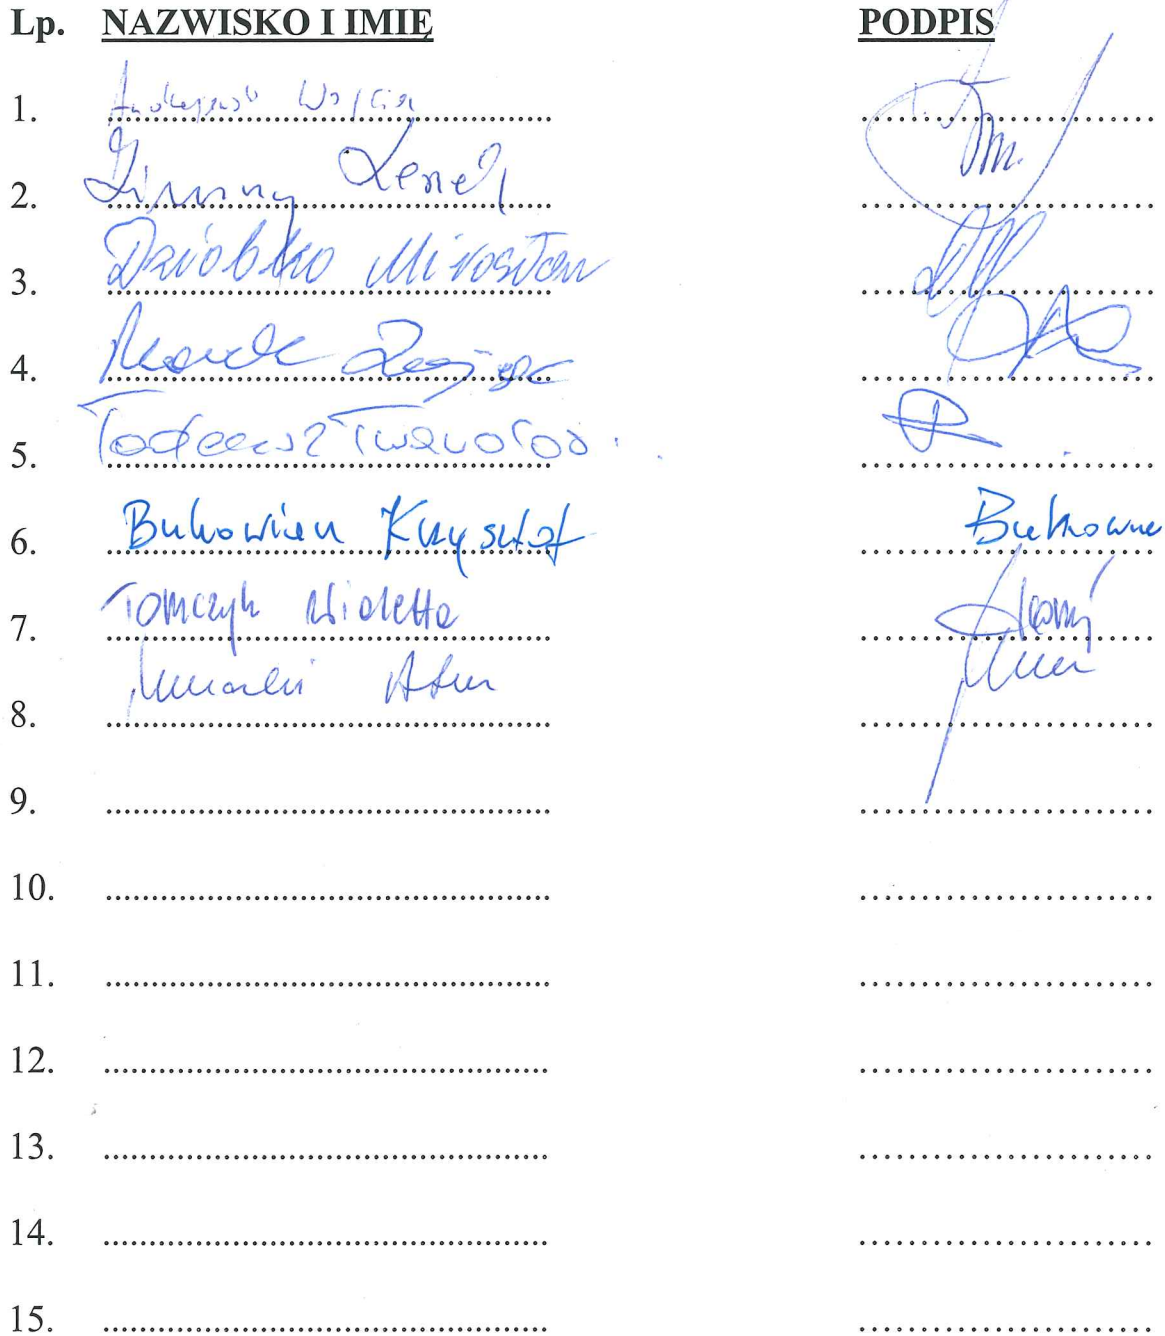 Lp. NAZWISKO I IMIĘ PODPIS
1. Wojciech
2. Zimny Leszek
3. Dziobko Mirosław
4. Marek Zając
5. Tadeusz Twaróg
6. Bukowian Krzysztof
7. Tomczyk Wioletta
8. Artur
9.
10.
11.
12.
13.
14.
15.